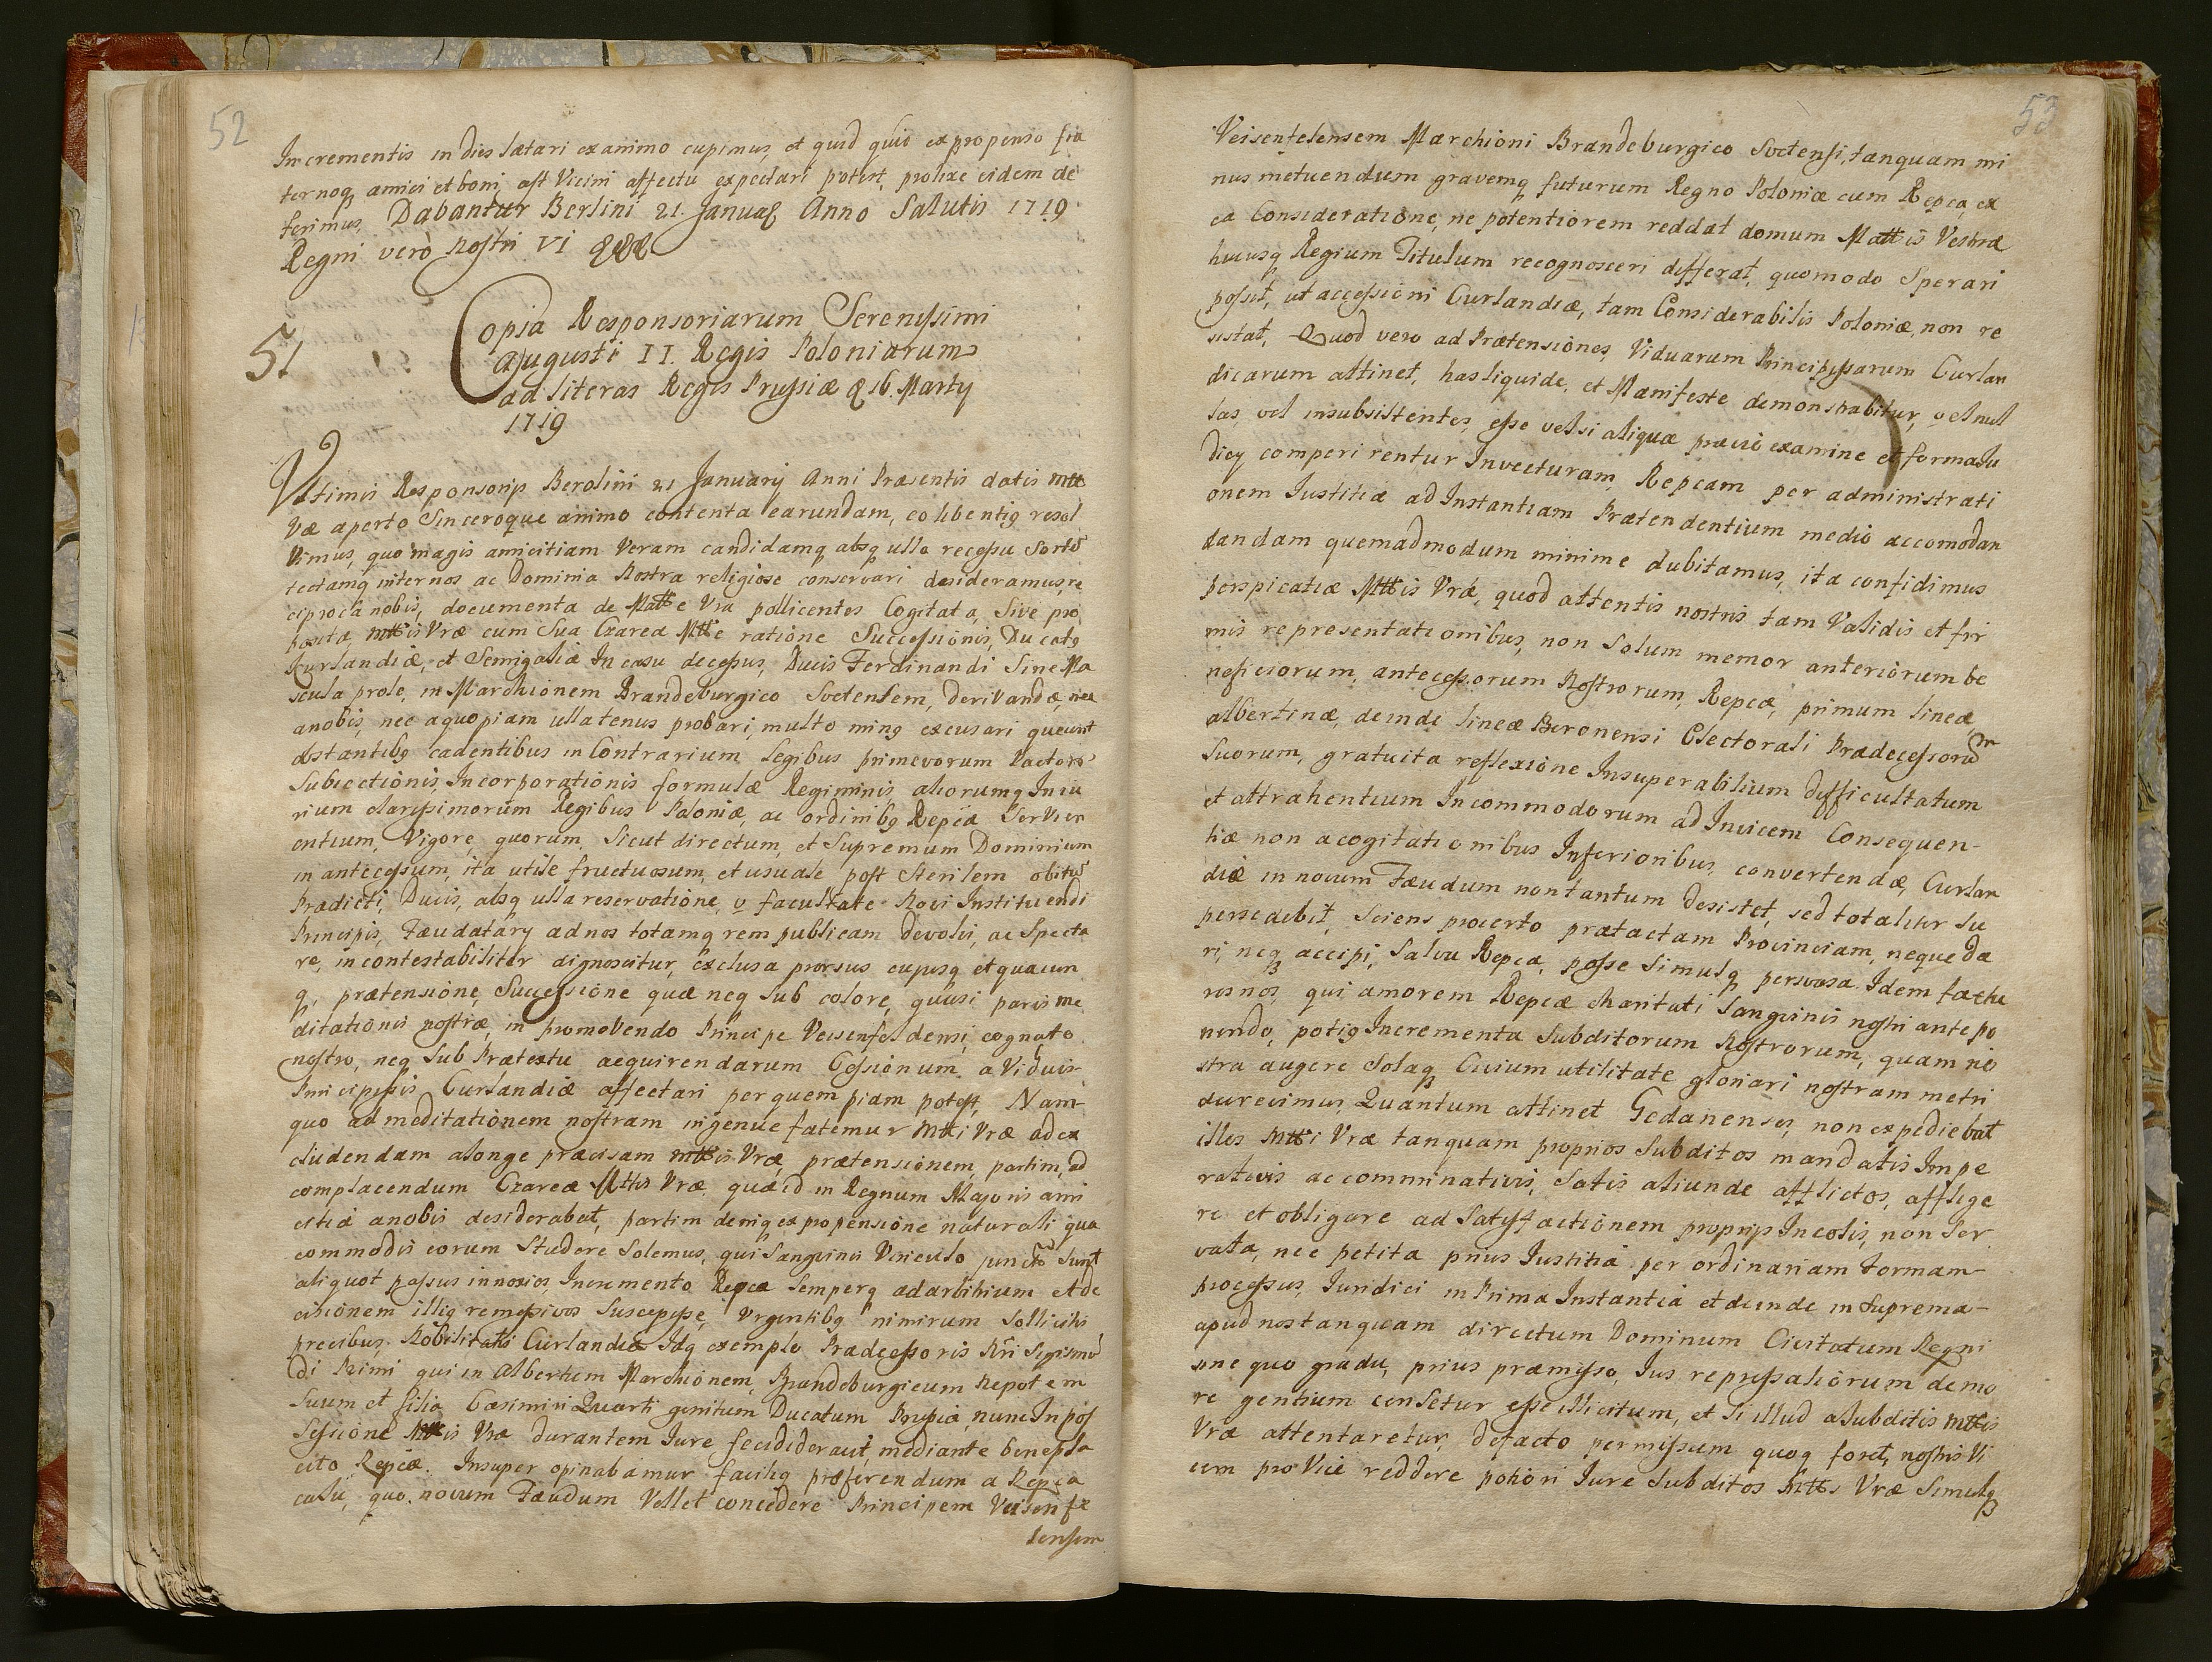 52
Incrementis in dies lætari ex animo cupimus, et quid quid ex propenso fra
ternoq amici et boni, ast Vicini affectu expectari potest, prolixe eidem de
ferimus. Dabantur Berlini 21. Januar Anno Salutis 1719
Regni verò Nostri VI
51
Copia Responsoriarum Serenissimi
Augusti II. Regis Poloniarum
ad literas Regis Prussiæ 16. Martij
1719
Ultimis Responsorijs Berolini 21 Januarij Anni Præsentis datis Mtt
Væ aperto Sinceroque animo contenta earundam, eo libentig resol
Vimus, quo magis amicitiam Veram candidamq absq ullo recessu
tectamq inter nos ac Dominia Nostra religiose conservari desideramus, re
ciproca nobis, documenta de Matte Vra pollicentes Cogitata, Sive pro
posita Mttis Vræ cum Sua Czarea Mtte ratione Successionis, Ducatg
Curlandiæ, et Semigaliæ In casu decessus, Ducis Ferdinandi Sine Ma
scula prole, in Marchionem Brandeburgico Svetensem, derivandæ, nec
a nobis, nec a quopiam ullatenus probari, multo ming excusari queunt
obstantibg cadentibus in Contrarium legibus primevorum Pactorũ
Subiectionis, Incorporationis formulæ Regiminis aliorumq In iu
rium clarissimorum Regibus Poloniæ, ac ordinibg Repcæ
entium, Vigore, quorum, Sicut directum, et Supremum Dominium
in antecessum, ita utile fructuosum, et usuale post Sterilem obitũ
Prædicti, Ducis, absq ulla reservatione, facultate Novi Instituendi
Principis, Fæudatarij ad nos totamq rem publicam devolvi, ac Specta
re, incontestabiliter dignoscitur, exclusa prorsus cujusq et quacun
q, prætensione, Successione quæ neq Sub colore, quasi paris me
ditationis nostræ, in promovendo Principe Veisenfesdensi, cognato
nostro, neq Sub Prætextu acquirendarum Cessionum a Viduis
Principissis Curlandiæ affectari per quem piam potest, Nam
quo ad meditationem nostram ingenue fatemur Mtti Vræ ad ex
cludendam a longe præcisam Mttis Vræ prætensionem, partim, ad
complacendum Czareæ Mttis Vræ quæ id in Regnum Majoris ami
citiæ a nobis desiderabat, partim deniq ex propensione naturali qua
commodis eorum Studere Solemus, qui Sanguinis Vinculo juncti Sunt
aliquot passus innoxios, Incremento Repcæ Semperq ad arbitrium et de
cisionem illig remissivos Suscepisse, Urgentibg nimirum Sollicitis
precibus, Nobilitatis Curlandiæ Idq exemplo Prædecessoris Nri Sigismũ
di Primi qui in Albertum Marchionem, Brandeburgicum Nepotem
Suum et filia Casimiri Quarti genitum Ducatum Prussiæ, nunc In pos
Sessione Mttis Vræ durantem Jure feudi dederaut, mediante benepla
cito Repcæ. Insuper opinabamur facilig præferendum a Repca
casu, quo novum Fæudum Vellet concedere Principem Veisenfe
lensem
53
Veisenfelensem Marchioni Brandeburgico Svetensi, tanquam mi
nus metuendum gravemq futurum Regno Poloniæ cum Repca, ex
ea Consideratione, ne potentiorem reddat domum Mattis Vestræ
hucusq Regium Titulum recognosceri differat, quomodo Sperari
possit, ut accessioni Curlandiæ, tam Considerabilis Poloniæ, non re
sistat, Quod vero ad Prætensiones Viduarum Principissarum Curlan
dicarum attinet, has liquide, et Manifeste demonstrabitur, vel nul
las, vel insubsistentes, esse vel si aliquæ prævio examine et forma Ju
dicij comperirentur Invecturam, Repcam per administrati
onem Justitiæ ad Instantiam Prætendentium medio accomodan
dandam quemadmodum minime dubitamus, ita confidimus
perspicatiæ Mttis Vræ, quod attentis nostris tam Validis et fir
mis representationibus, non Solum memor anteriorum be
neficiorum, antecessorum Nostrorum, Repcæ, primum lineæ
albertinæ, deinde lineæ Beronensi Electorali Prædecessorũ
Suorum, gratuita reflexione Insuperabilium difficultatum
et attrahentium Incommodorum ad Invicem Consequen-
tiæ non a cogitationibus Inferioribus, convertendæ, Curlan
diæ in novum Fæudum non tantum desistet, sed totaliter Su
persedebit, Sciens pro certo prætactam Provinciam, neque da
ri, neq accipi, Salva Repca, posse Simulq persvasa Idem factu
ros nos, qui amorem Repcæ charitati Sanguinis nostri antepo
nendo, potig Incrementa Subditorum Nostrorum, quam no
stra augere Solaq Civium utilitate gloriari nostram metri
durecimus, Quantum attinet Gedanenses, non expediebat
illos Mtti Vræ tanquam proprios Subditos mandatis Impe
rativis ac comminativis, Satis aliunde afflictos, afflige
re et obligare ad Satisfactionem proprijs Incolis, non Ser
vata, nec petita prius Justitia per ordinariam Formam
processus, Juridici in Prima Instantia et deinde in Suprema-
apud nos tanquam directum Dominum Civitatum Regni
sine quo gradu, prius præmisso, Jus represaliorum de mo
re gentium censetur esse illicitum, et Si illud a Subditis Mttis
Vræ attentaretur, de facto permissum quoq foret, nostris Vi
cem pro Vice reddere potiori Jure Subditos Mttis Vræ Simulq